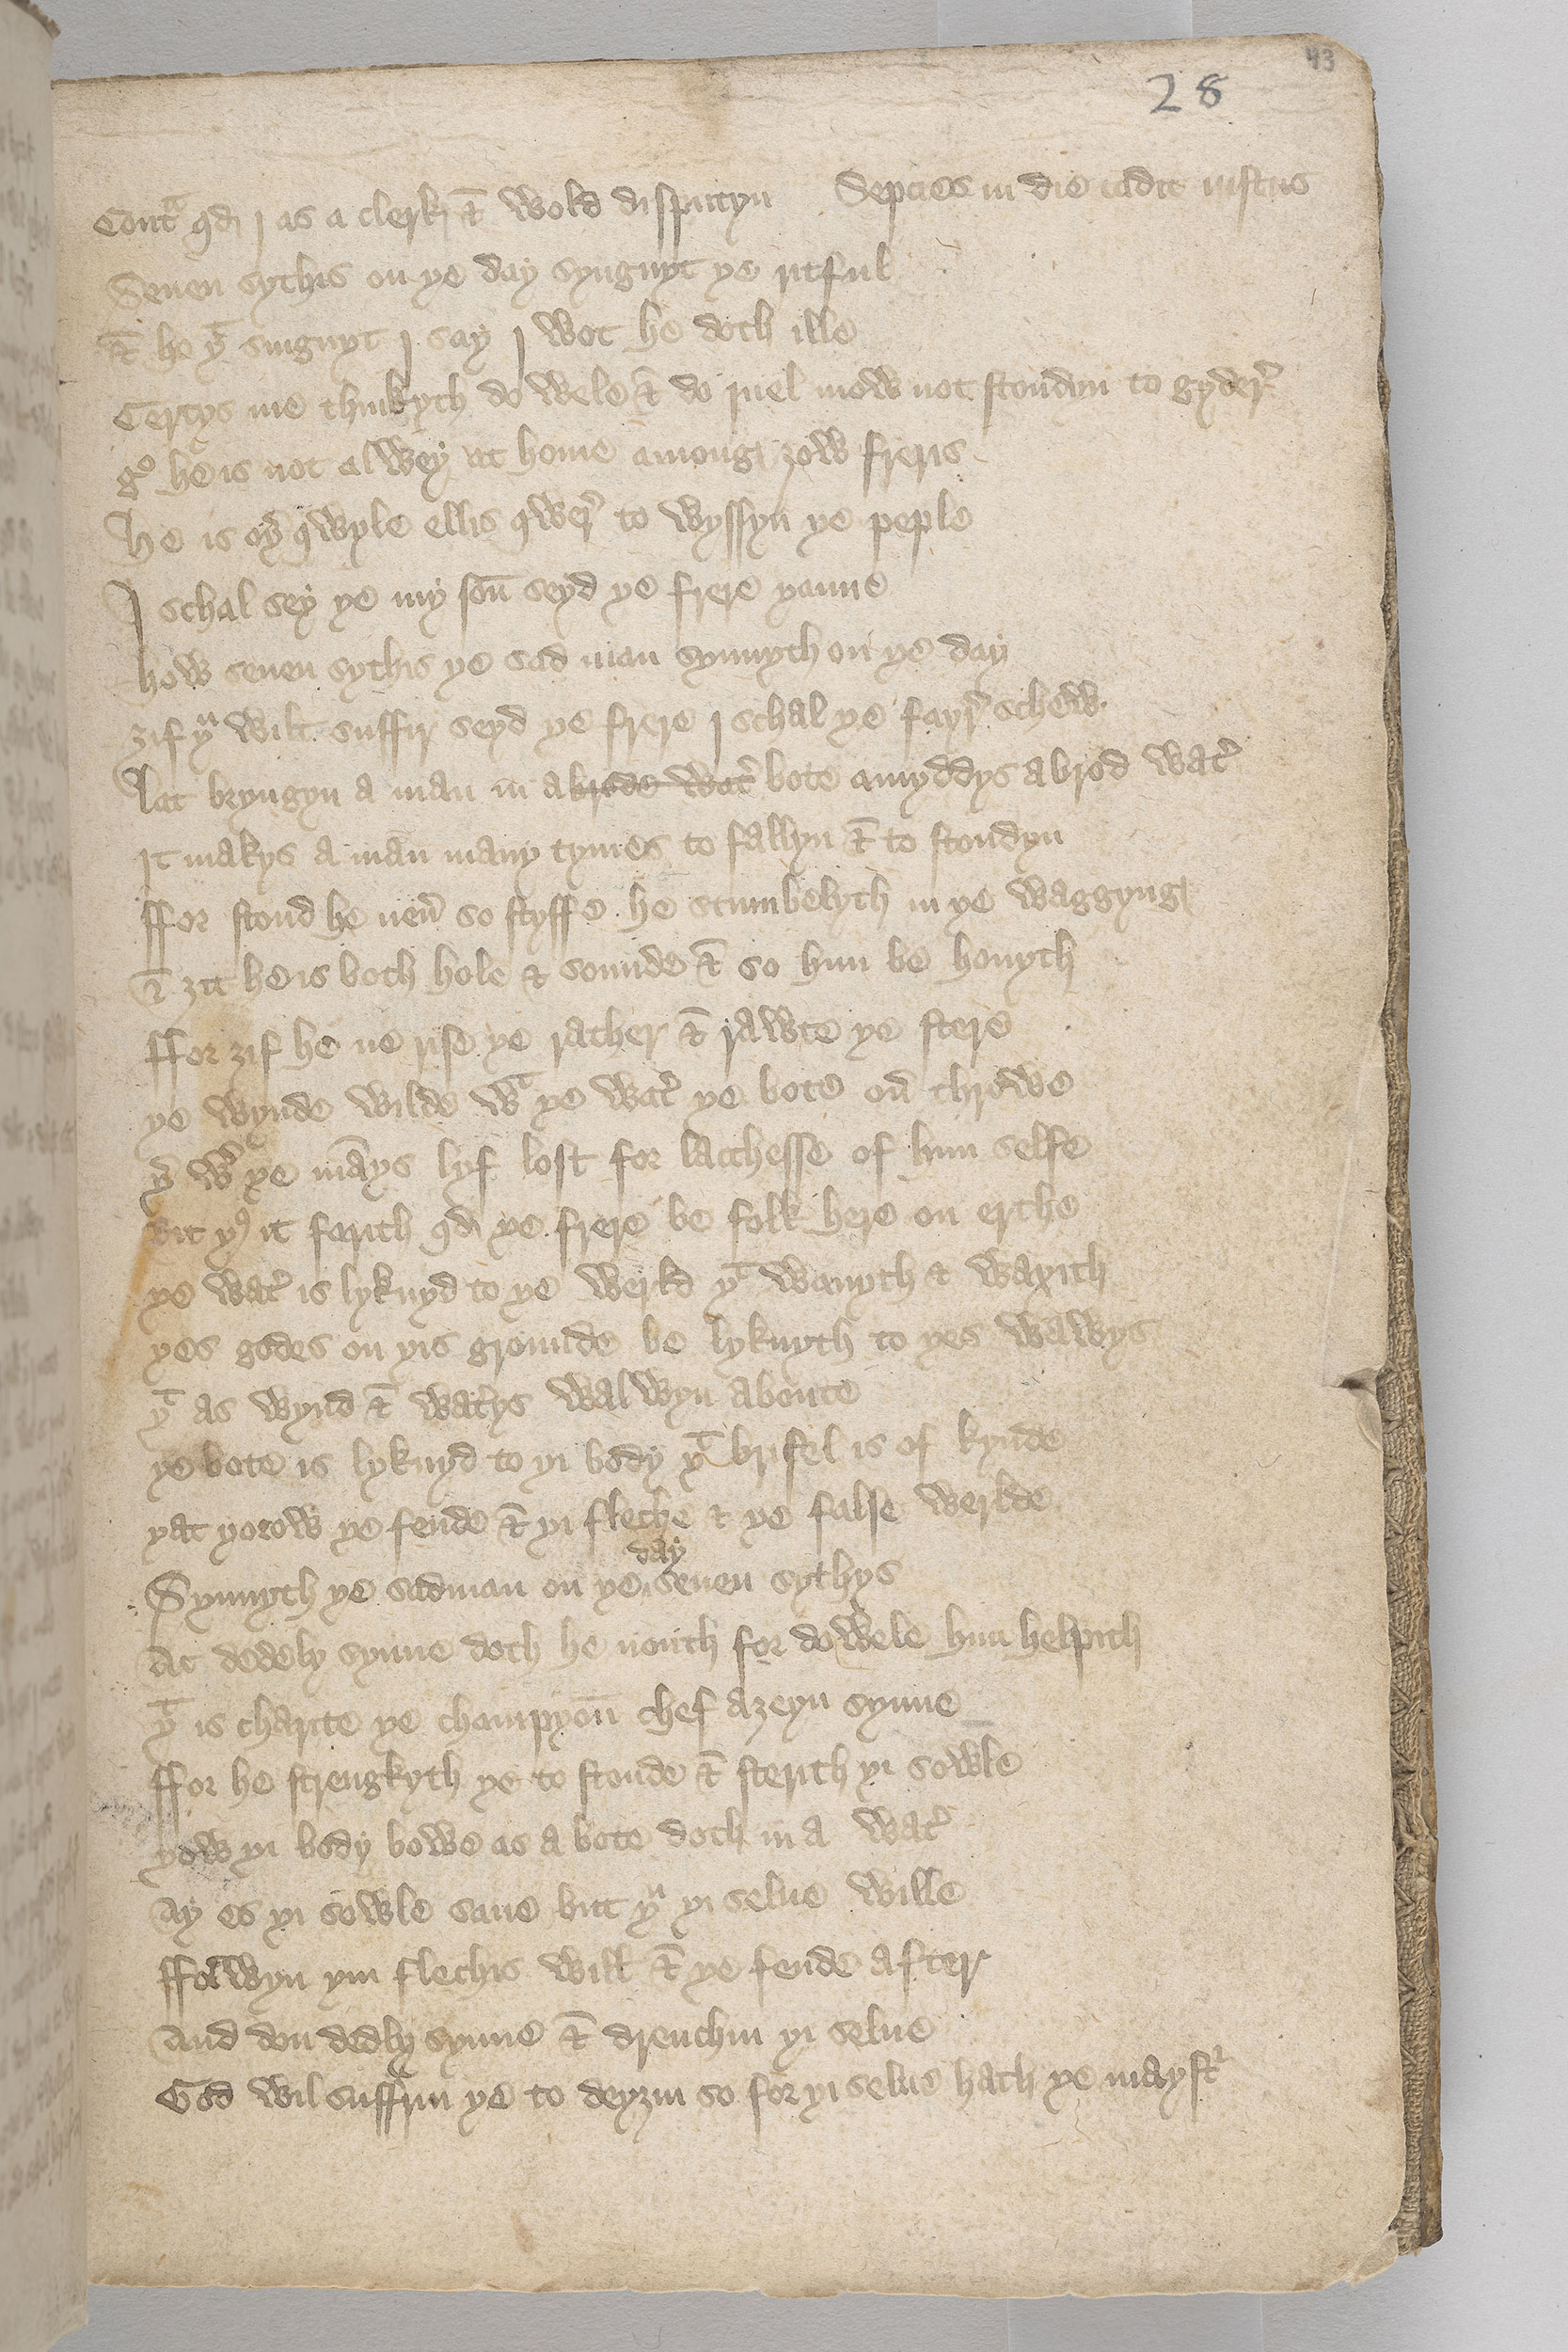 43
28
Contᵃ qd I as a clerk & wold disputyn Sepcies in die cadit iustus
Seuen sythis on ye day synguyt ye ritful
& he yᵗ singuyt I say I wot he doth ille
Certys me thinkych do wele & do iuel mow not stondyn to gyderˀ
gᵒ he is not alwey at home among zow freris
He is oyˀ qwyle ellis qwerˀ to wyssyn ye peple
I schal sey ye my son̄ seyd ye frere yanne
How seuen sythis ye sad man synnych on ye day
zif yᵘ wilt suffir seyd ye frere I schal ye fayrˀ schew
Lat bryngyn a man in a brode watˀ bote amyddys a brod watˀ
It makys a man many tymes to fallyn & to stondyn
ffor stond he neuˀ so styffe he stumbelych in ye waggyng
& zit he is both hole & sounde & so him be houych
ffor zif he ne rise ye rather & rawte ye stere
ye wynde wilde wᵗ ye watˀ ye bote ouˀ throwe
yˀ wˀ ye mānys lyf lost for lacchesse of him selfe
rit yᵘˢ it farith qd ye frere be folk here on erthe
ye watˀ is lyknyd to ye werld yᵗ wanyth & waxith
yes godes on yis grounde be lyknyth to yes wawys
yᵗ as wynd & watˀys walwyn aboute
ye bote is lyknyd to yi body yᵗ britel is of kynde
yat yorow ye fende & yi fleche & ye false werlde
Synnych ye sadman on ye day seuen sythys
At dedely synne doth he nouth for dowele him helpith
yᵗ is charite ye champyon̄ chef azeyn synne
ffor he strengkyth ye to stonde & sterith yi sowle
yow yi body bowe as a bote doth in a watˀ
Ay es yi sowle saue but yᵘ yi selue wille
ffolwyn yin flechis will & ye fende after
And don dedly synne & drenchin yi selue
God wil suffrin ye to deyzin so for yi selue hath ye maystˀ